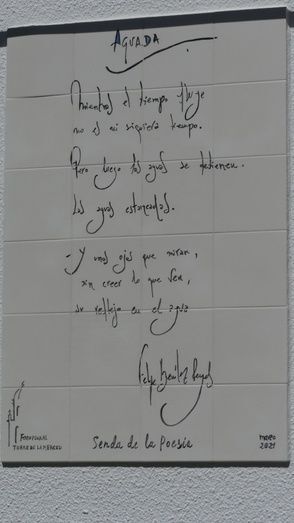 AGUADA
Mientras el tiempo fluye
no es ni siquiera tiempo.
Pero luego las aguas se detienen.
Las aguas estancadas.
- Y unos ojos que miran,
sin creer lo que ven,
su reflejo en el agua
Felipe Benítez Reyes
Senda de la Poesía
2021